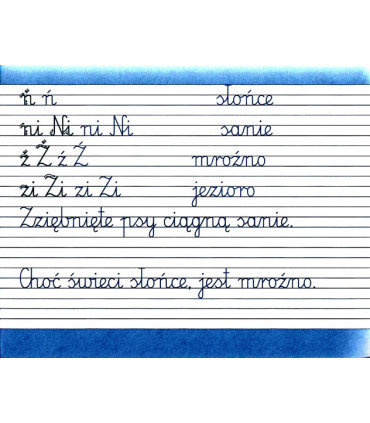 ń ń słońce
ni Ni ni Ni sanie
ź Ź ź Ź mroźno
zi Zi zi Zi jezioro
Zziębnięte psy ciągną sanie.
Choć świeci słońce, jest mroźno.